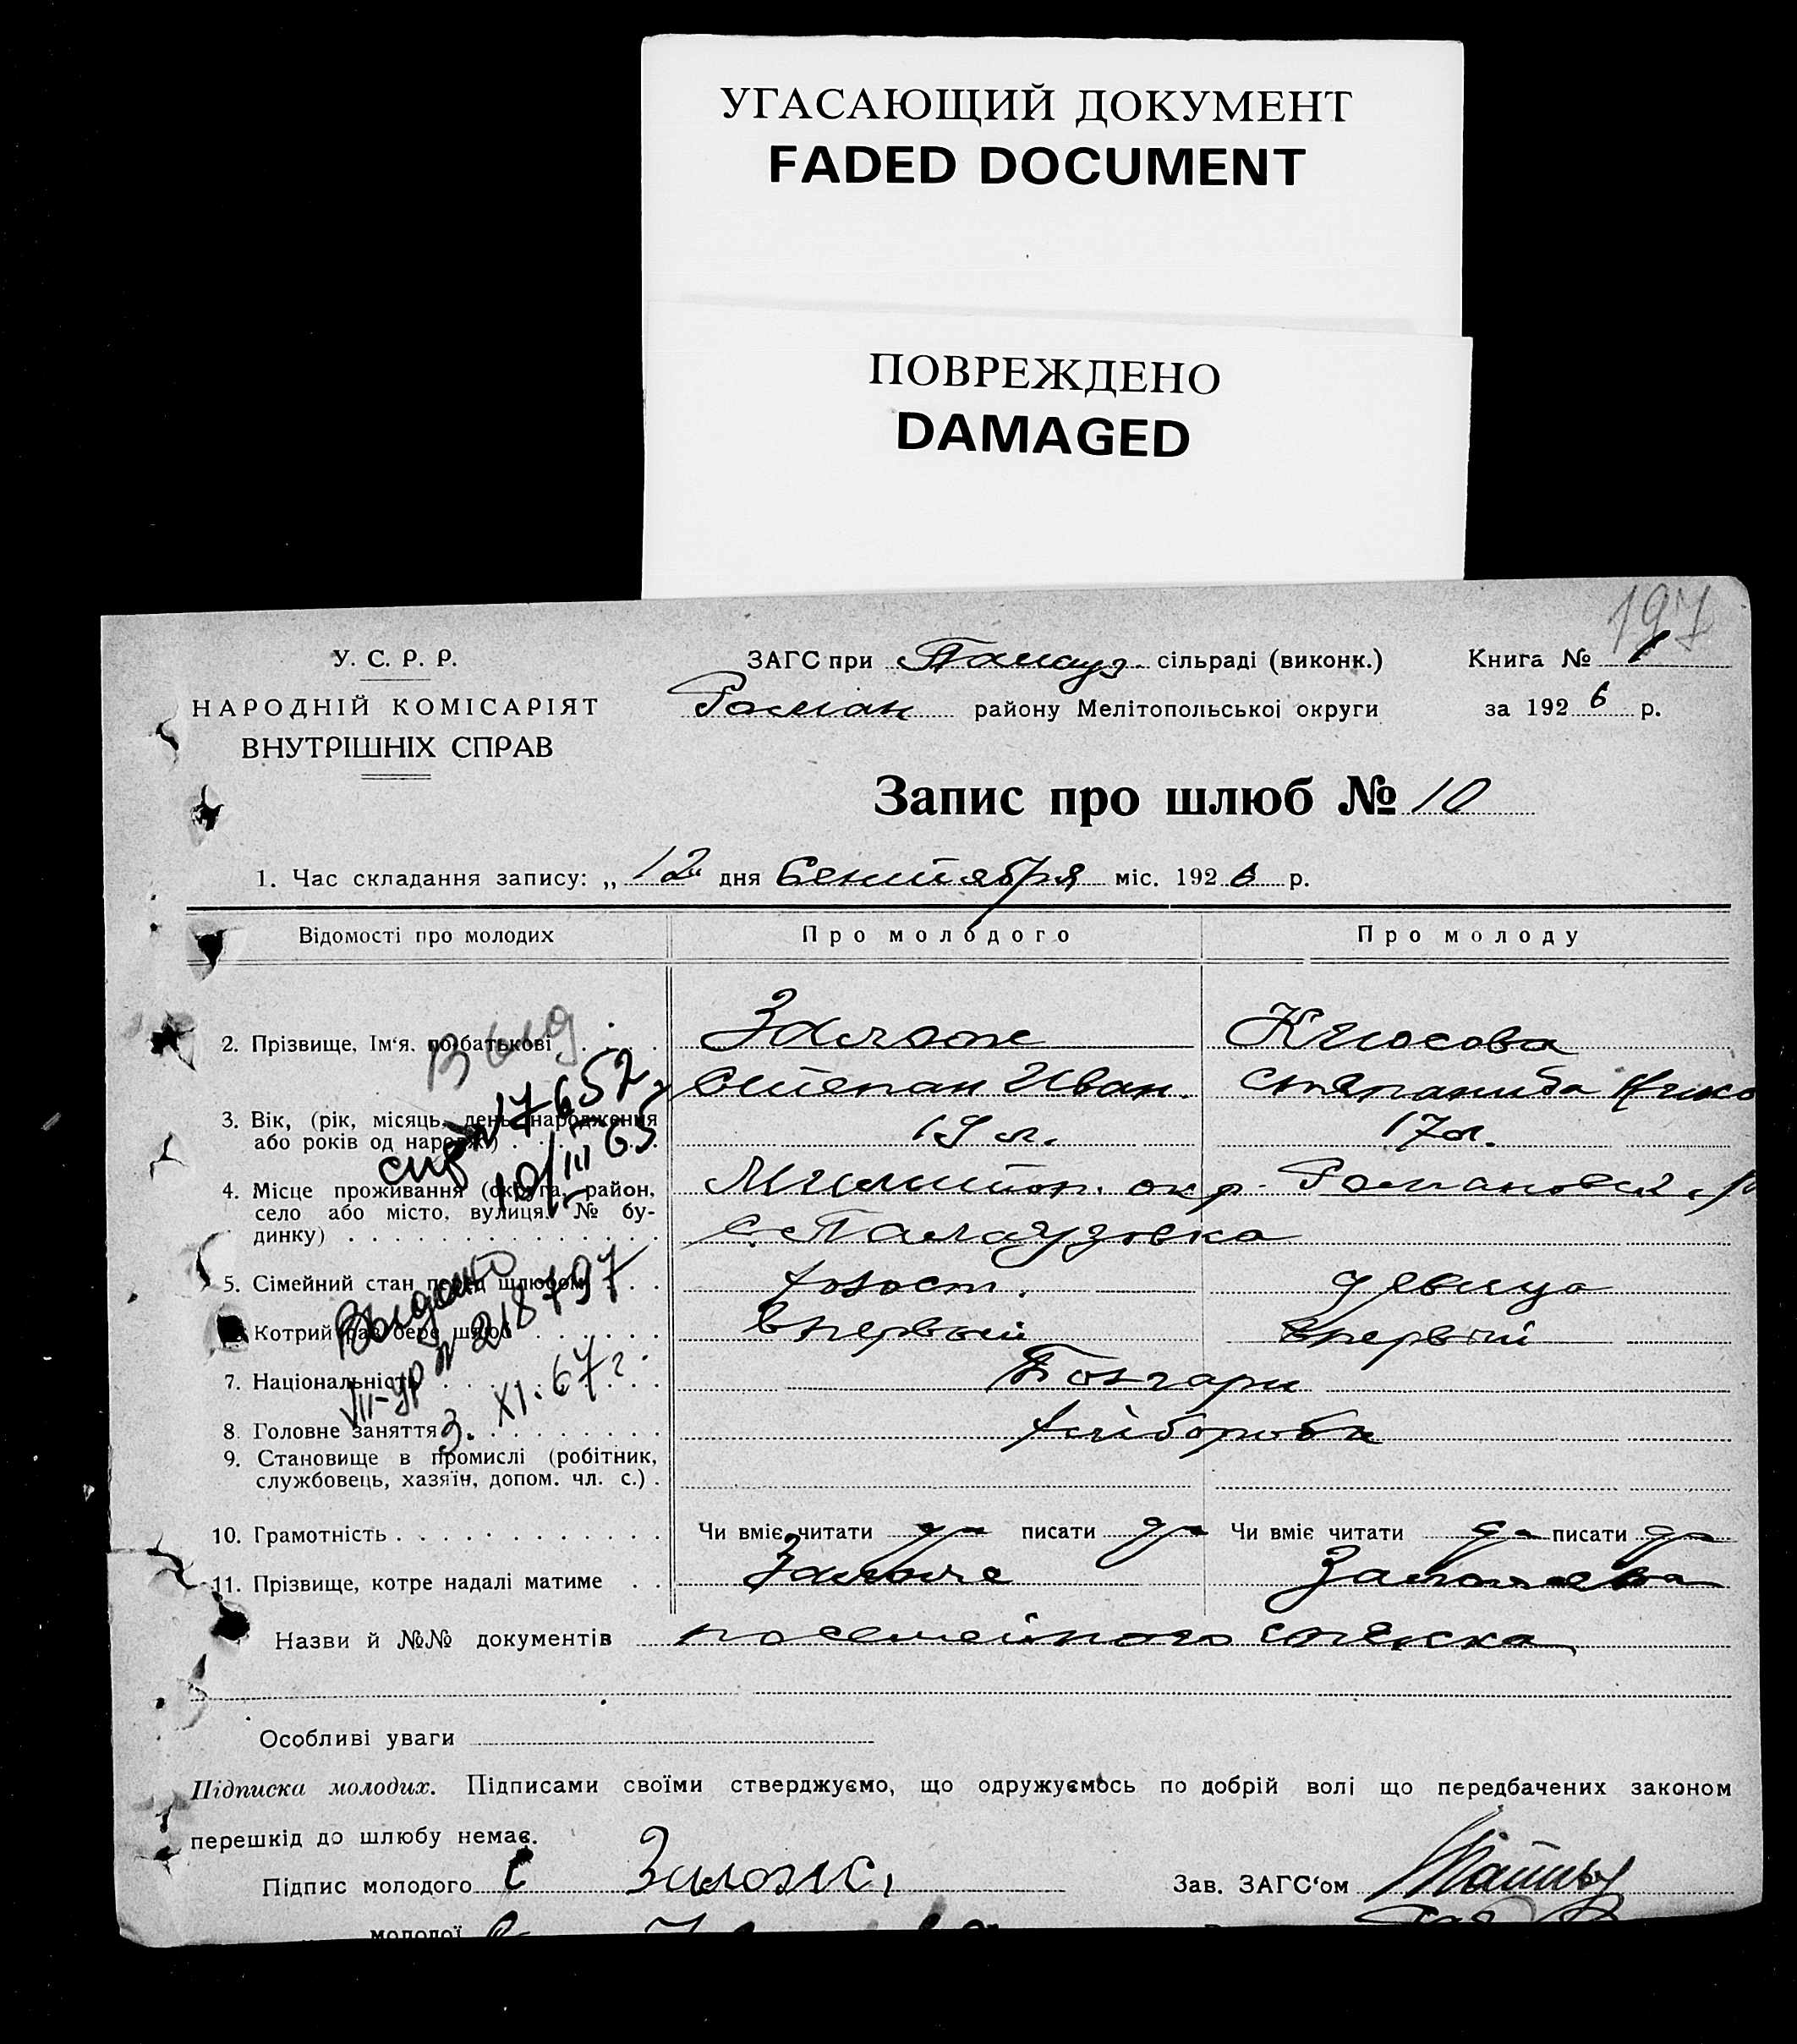 УГАСАЮЩИЙ ДОКУМЕНТ
FADED DOCUMENT
ПОВРЕЖДЕНО
DAMAGED
197
У. С. Р. Р.
НАРОДНІЙ КОМІСАРІЯТ
ВНУТРІШНІХ СПРАВ
ЗАГС при Палауз. сільраді (виконк.)
Роман районy Мелітопольської округи
Книга № 1
за 1926 р.
Запис про шлюб № 10
1. Час складання запису: „12" дня Сентября міс. 1926 р.
Відомості про молодих
Про молодого
Про молоду
2. Прізвище, Ім'я, по батькові
Степан Иван.
Клосова
Степанида
3. Вік, (рік, місяць, день народження
або років од народж.)
19 л.
17 л.
4. Місце проживання (округа, район,
село або місто, вулиця, № бу-
динку)
окр. Романовск
с. Палаузовка
5. Сімейний стан перед шлюбом
холост.
девица
6. Котрий раз бере шлюб
впервый
впервый
7. Національність
Болгари
8. Головне заняття
хлібороба
9. Становище в промислі (робітник,
службовець, хазяїн, допом. чл. с.)
10. Грамотність
Чи вміє читати да писати да
Чи вміє читати да писати да
11. Прізвище, котре надалі матиме
Назви й №№ документів посемейного списка
Особливі уваги
Підписка молодих. Підписами своїми стверджуємо, що одружуємось по добрій волі що передбачених законом
перешкід до шлюбу немає.
Підпис молодого С
Зав. ЗАГС'ом
молодої
Выд
спр № 17652
10/III 65
Выдано
VII-УР № 218797
3. XI. 67 г.